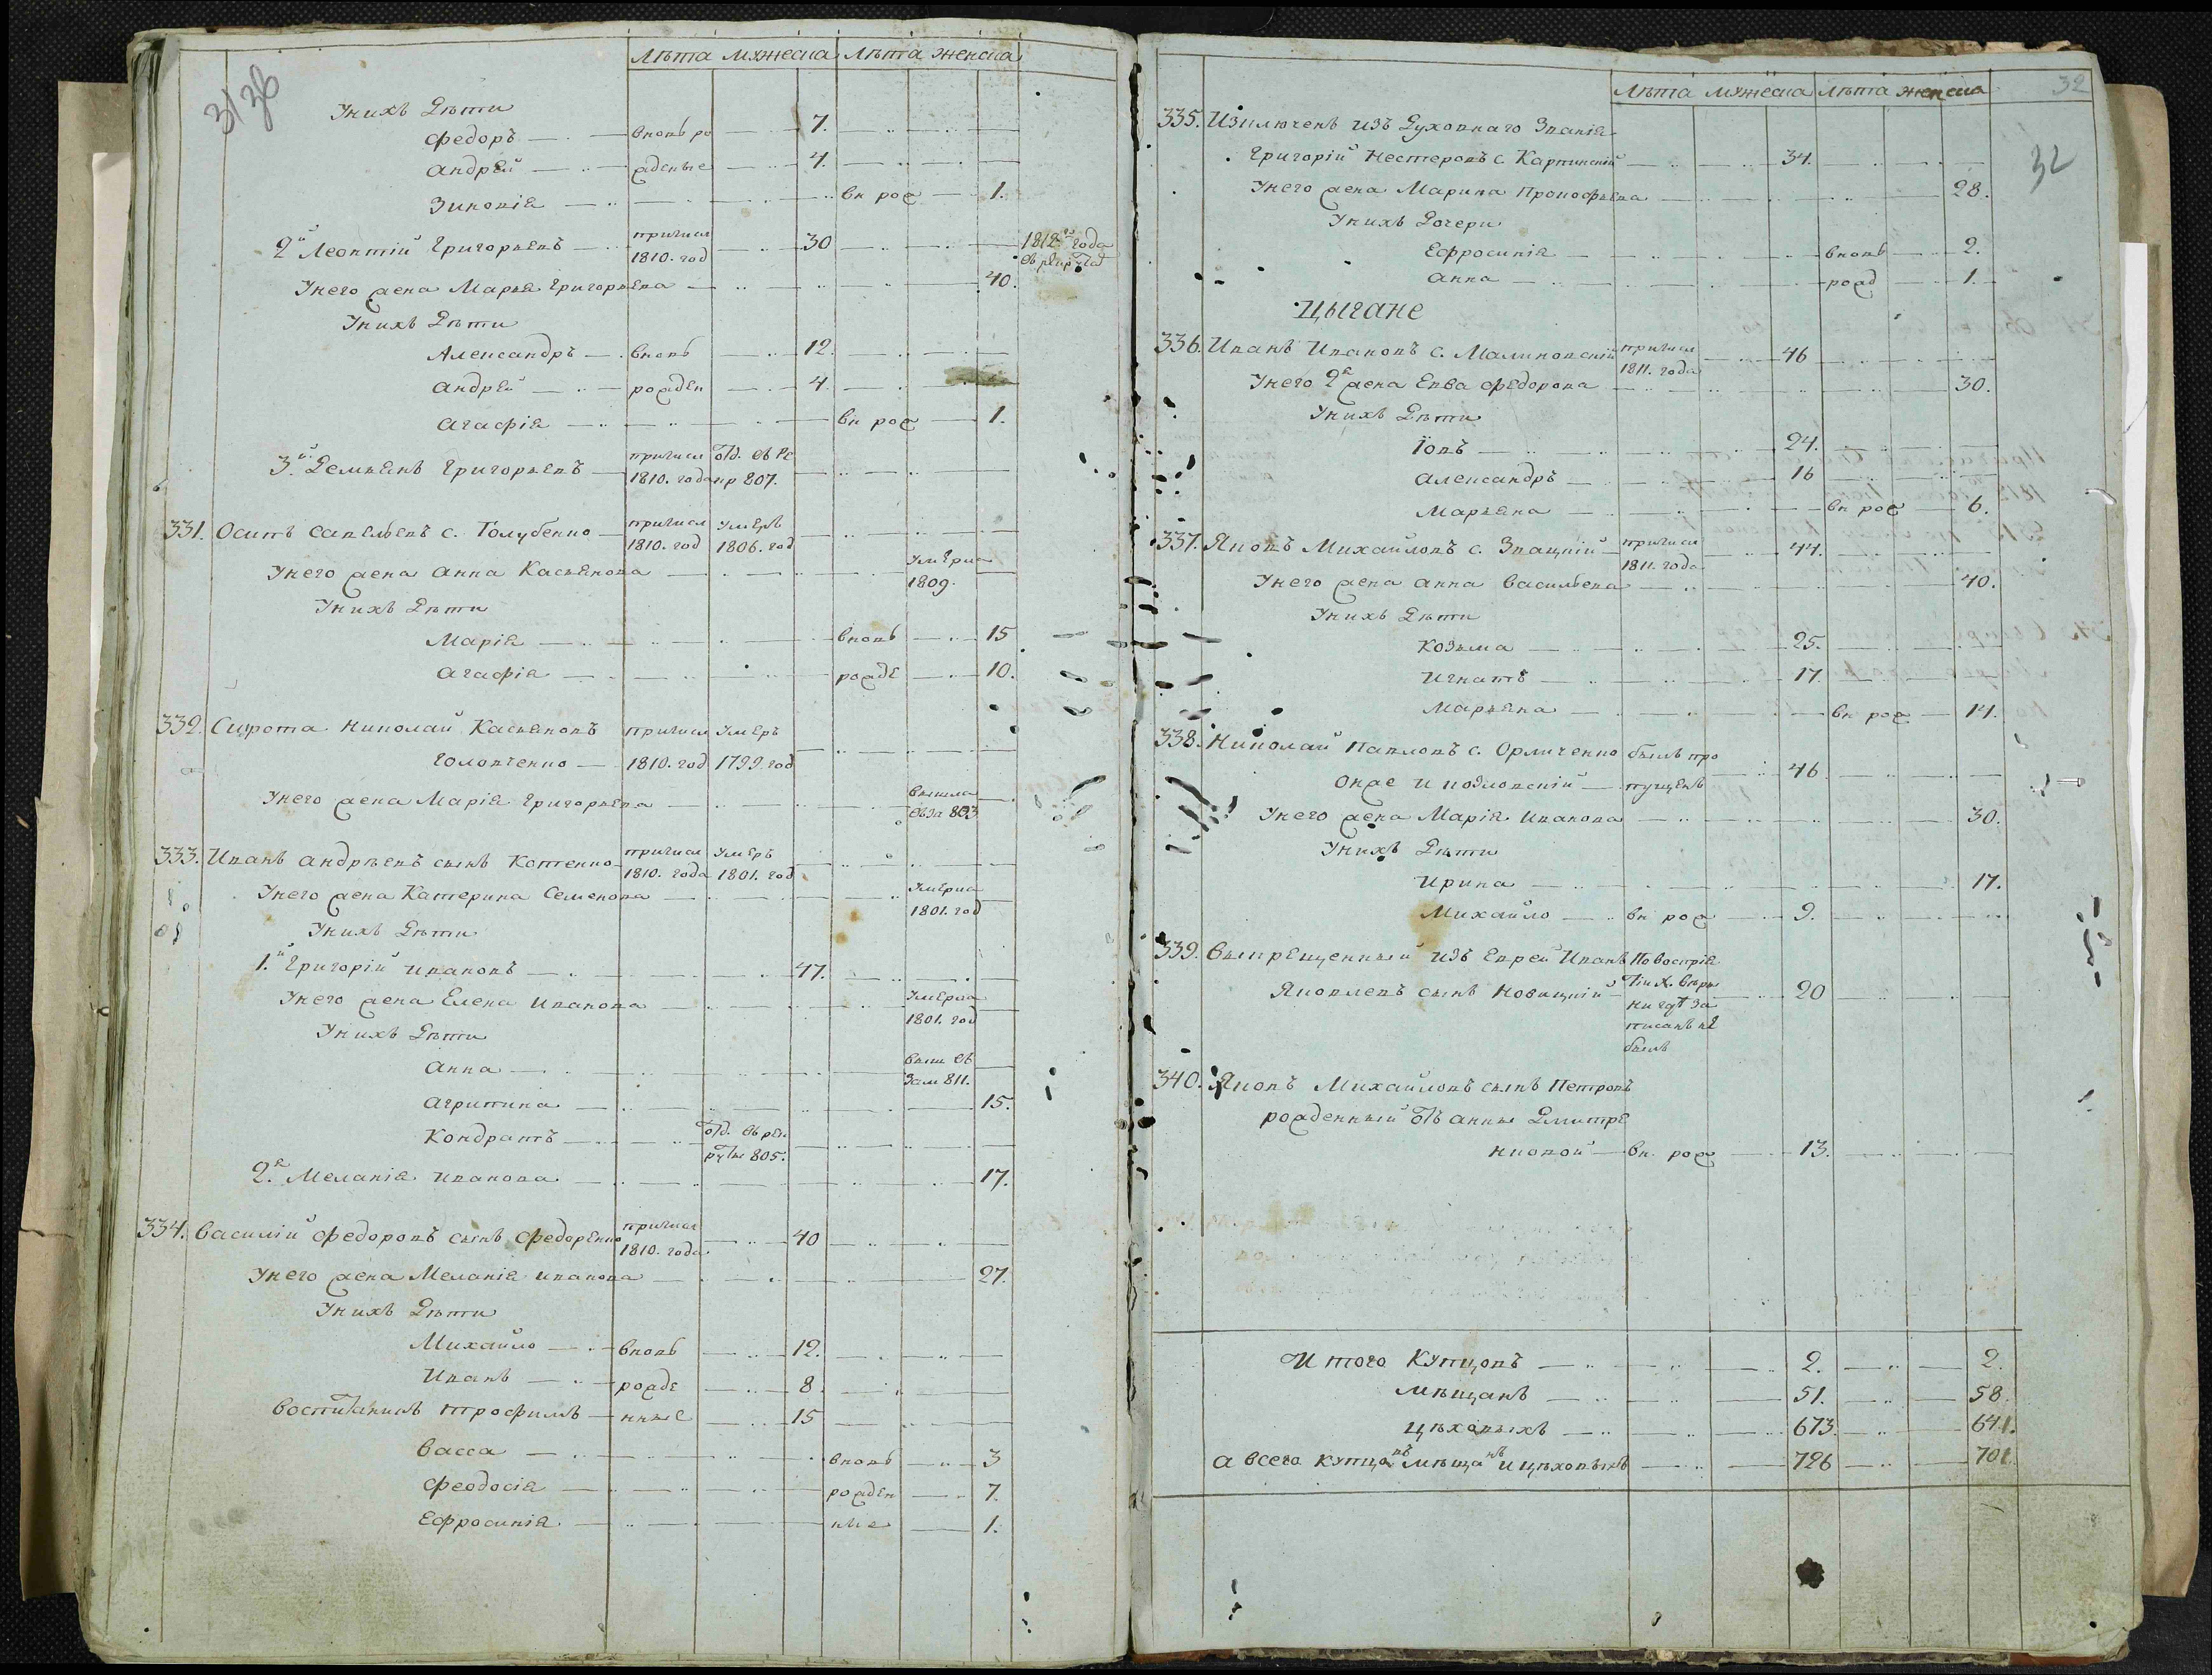 31 зв
Лѣта мужеска Лѣта женска
Унихъ Дѣти
Федоръ вновь ро 7.
Андрей жденые 4.
Зиновія вн рож 1.
2й Леонтій Григорьевъ причисл 1810. год 30 1812го года
Унего жена Марья Григорьева 40.
Унихъ Дѣти
Александръ вновь 12.
Андрей рожден 4.
Агафія вн рож 1.
3й Демьянъ Григорьевъ причисл 1810. года отд. въ Ре кр 807.
331. Осипъ Савельевъ с. Голубенко причисл 1810. год умеръ 1806. год
Унего жена Анна Касьянова умерла 1809.
Унихъ Дѣти
Марія вновь 15
Агафія рожде 10.
332. Сирота Николай Касьяновъ причисл умеръ
Головченко 1810. год 1799. год
Унего жена Марія Григорьева вышла въ за 803
333. Иванъ Андрѣевъ сынъ Котенко причисл 1810. года умеръ 1801. год
Унего жена Катерина Семенова умерла 1801. год
Унихъ Дѣти
1.й Григорій Ивановъ 47.
Унего жена Елена Иванова умерла 1801. год
Унихъ Дѣти
Анна выш въ Зам 811.
Агрипина 15.
Кондратъ отд. въ рек руты 805.
2.я Меланія Иванова 17.
334. Василій Федоровъ сынъ Федоренко причисл 1810. года 40
Унего жена Меланія Иванова 27.
Унихъ Дѣти
Михайло вновь 12.
Иванъ рожде 8.
Воспитаникъ Трофимъ нные 15
Васса вновь 3
Феодосія рожден 7.
Ефросинія ные 1.
32
32
Лѣта мужеска Лѣта женска
335. Изключенъ изъ Духовнаго Званія
Григорій Нестеровъ с. Карпинскій 34.
Унего жена Марина Прокофьева 28.
Унихъ Дочери
Ефросинія вновь 2.
Анна рожд 1.
Цыгане
336. Иванъ Ивановъ с. Малиновскій причисл 1811. года 46
Унего 2я жена Евва Федорова 30.
Унихъ Дѣти
Іовъ 24.
Александръ 16
Марьяна вн рож 6.
337. Яковъ Михайловъ с. Знацкій причисл 1811. года 44.
Унего жена Анна Васильева 40.
Унихъ Дѣти
Козьма 25.
Игнатъ 17.
Марьяна вн рож 14.
338. Николай Павловъ с. Орличенко былъ про
Онже и Козловскій пущенъ 46
Унего жена Марія Иванова 30.
Унихъ Дѣти
Ирина 17.
Михайло вн рож 9.
339. Выкрещенный изъ Еврей Иванъ По воспрія
Яковлевъ сынъ Новицкій тіи Х. вѣры 20
нигдѣ за
писанъ не
былъ
340. Яковъ Михайловъ сынъ Петровъ
рожденный отъ Анны Дмитре
нковой вн. рож 13.
Итого Купцовъ 2. 2.
Мѣщанъ 51. 58.
Цѣховыхъ 673. 641.
А всего купцовъ мѣщанъ и цѣховыхъ 726 701.